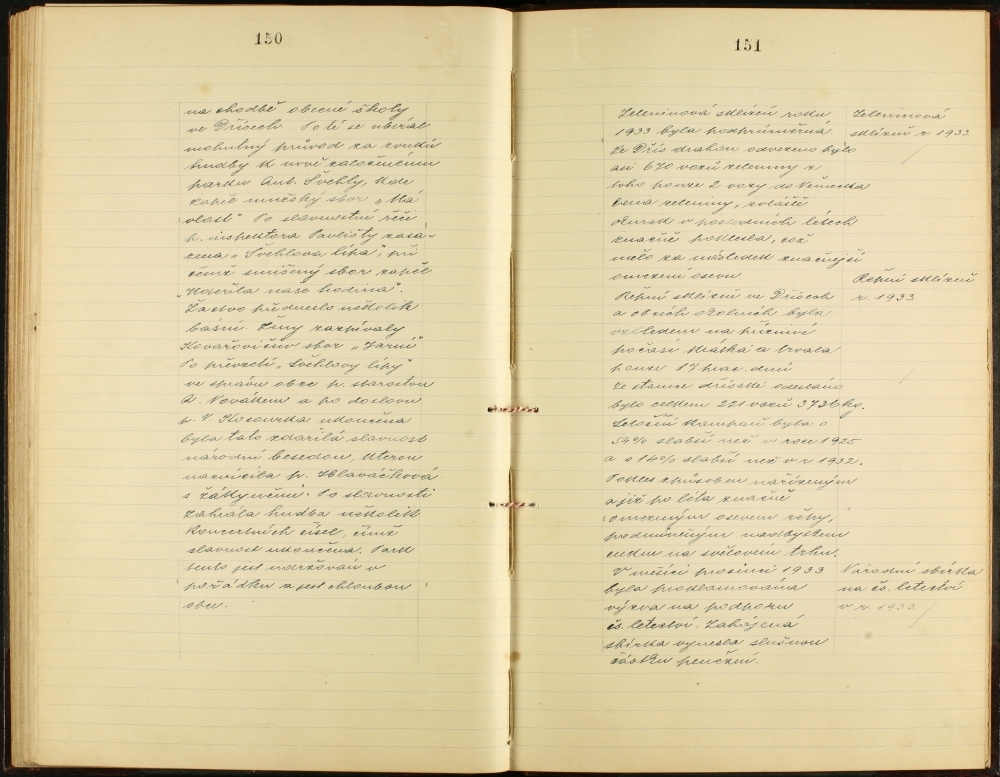 150
na chodbě obecné školy
ve Dřísech. Poté se ubíral
mohutný průvod za zvuků
hudby k nově založenému
parku Ant. Švehly, kde
zapěl mužský sbor „Má
vlast“ Po slavnostní řeči
p. inspektora Pavlišty zasa-
zena „Švehlova lípa“, při
čemž smíšený sbor zapěl
„Udeřila naše hodina“.
Žactvo předneslo několik
básní. Ženy zazpívaly
Kovařovičův sbor „Jarní“
Po převzetí „Švehlovy lípy“
ve správu obce p. starostou
A. Novákem a po doslovu
p. V. Kocourka ukončena
byla tato zdařilá slavnost
národní besedou, kterou
nacvičila p. Hlaváčková
s žákyněmi. Po slavnosti
zahrála hudba několik
koncertních čísel, čímž
slavnost ukončena. Park
tento jest udržován v
pořádku a jest chloubou
obce.
151
Zeleninová sklizeň roku
1933 byla podprůměrná
Ze Dřís drahou odvezeno bylo
asi 670 vozů zeleniny z
toho pouze 2 vozy do Německa
Cena zeleniny, zvláště
okurek v posledních létech
značně poklesla, což
mělo za následek značnější
omezení osevu.
Řepní sklizeň ve Dřísech
a obcích okolních byla
vzhledem na příznivé
počasí krátká a trvala
pouze 17 prac. dnů
Ze stanice dřísské odesláno
bylo celkem 221 vozů 3736 kg.
Letošní kampaň byla o
54% slabší než v roce 1925
a o 14% slabší než v r. 1932.
Pokles způsoben nařízeným
a již po léta značně
omezeným osevem řepy,
podmíněným nadbytkem
cukru na světovém trhu.
V měsíci prosinci 1933
byla proklamována
výzva na podporu
čs. letectví. Zahájená
sbírka vynesla slušnou
částku peněžní.
Zeleninová
sklizeň r. 1933
Řepní sklizeň
r. 1933
Národní sbírka
na čs. letectví
v r. 1933